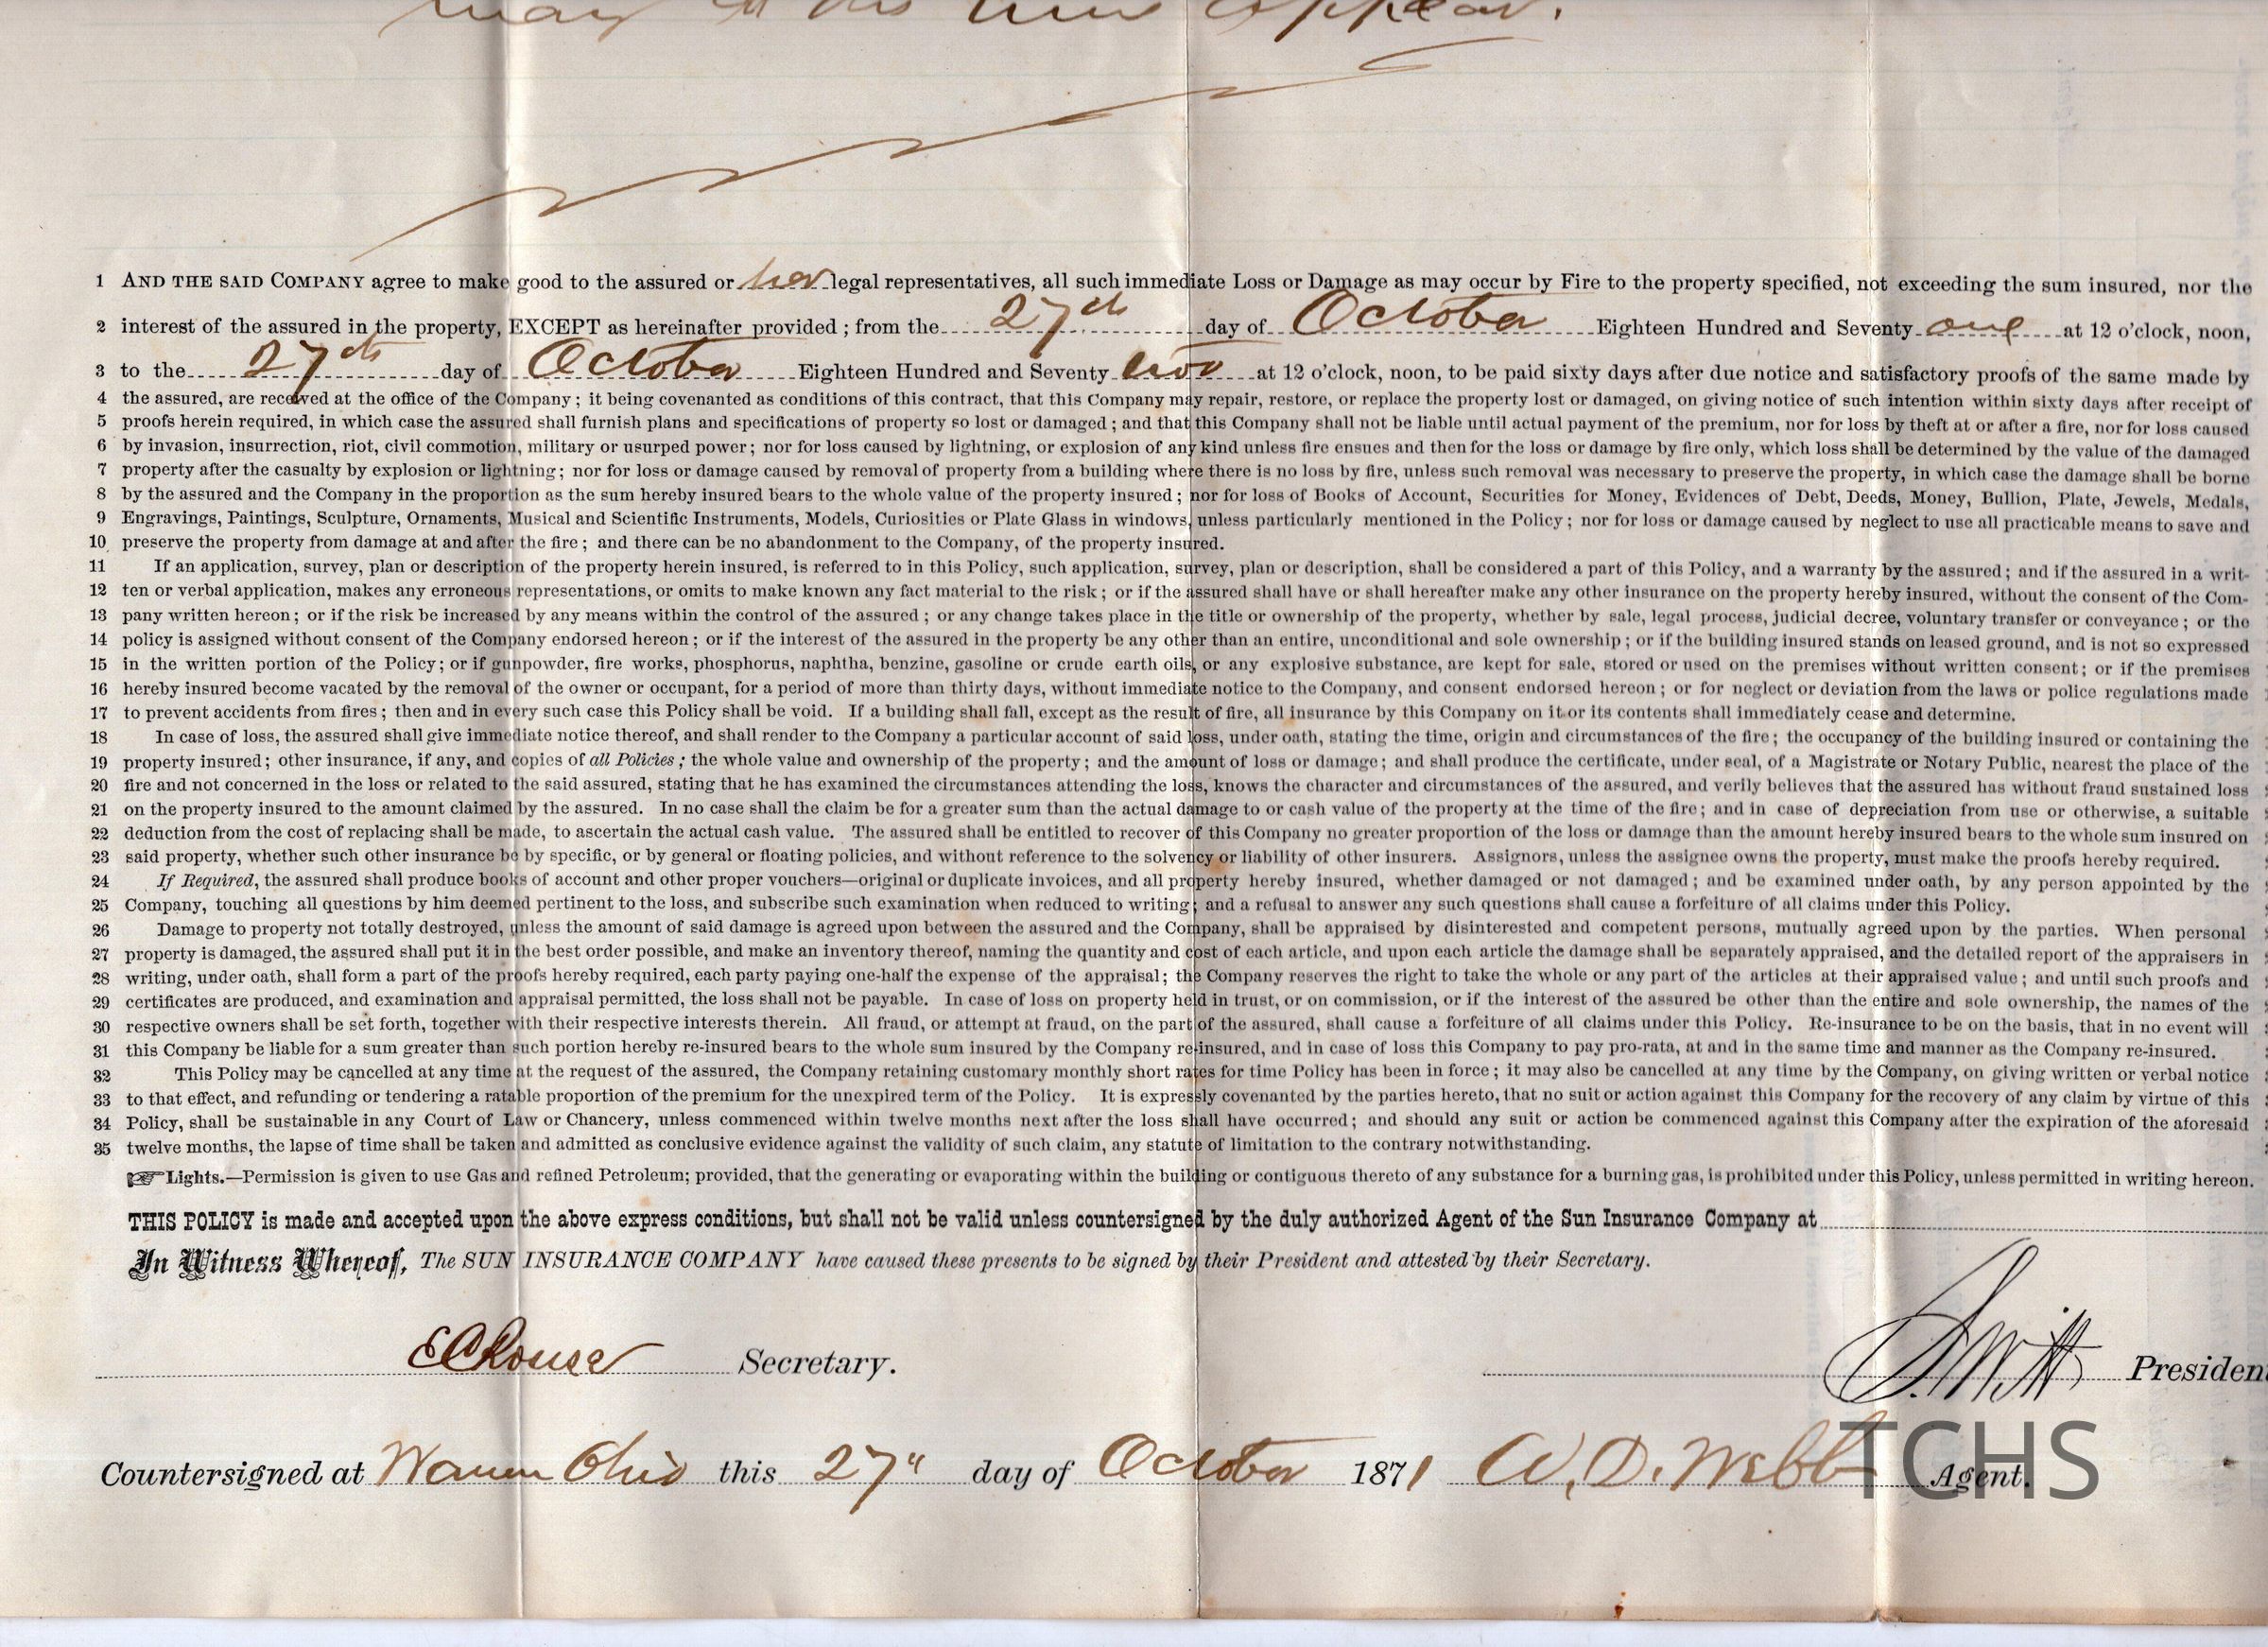 may at the time appear.
1 AND THE SAID COMPANY agree to make good to the assured or her legal representatives, all such immediate Loss or Damage as may occur by Fire to the property specified, not exceeding the sum insured, nor the
2 interest of the assured in the property, EXCEPT as hereinafter provided; from the 27th day of October Eighteen Hundred and Seventy one at 12 o'clock, noon,
3 to the 27th day of October Eighteen Hundred and Seventy two at 12 o'clock, noon, to be paid sixty days after due notice and satisfactory proofs of the same made by
4 the assured, are received at the office of the Company; it being covenanted as conditions of this contract, that this Company may repair, restore, or replace the property lost or damaged, on giving notice of such intention within sixty days after receipt of
5 proofs herein required, in which case the assured shall furnish plans and specifications of property so lost or damaged; and that this Company shall not be liable until actual payment of the premium, nor for loss by theft at or after a fire, nor for loss caused
6 by invasion, insurrection, riot, civil commotion, military or usurped power; nor for loss caused by lightning, or explosion of any kind unless fire ensues and then for the loss or damage by fire only, which loss shall be determined by the value of the damaged
7 property after the casualty by explosion or lightning; nor for loss or damage caused by removal of property from a building where there is no loss by fire, unless such removal was necessary to preserve the property, in which case the damage shall be borne
8 by the assured and the Company in the proportion as the sum hereby insured bears to the whole value of the property insured; nor for loss of Books of Account, Securities for Money, Evidences of Debt, Deeds, Money, Bullion, Plate, Jewels, Medals,
9 Engravings, Paintings, Sculpture, Ornaments, Musical and Scientific Instruments, Models, Curiosities or Plate Glass in windows, unless particularly mentioned in the Policy; nor for loss or damage caused by neglect to use all practicable means to save and
10 preserve the property from damage at and after the fire; and there can be no abandonment to the Company, of the property insured.
11 If an application, survey, plan or description of the property herein insured, is referred to in this Policy, such application, survey, plan or description, shall be considered a part of this Policy, and a warranty by the assured; and if the assured in a writ-
12 ten or verbal application, makes any erroneous representations, or omits to make known any fact material to the risk; or if the assured shall have or shall hereafter make any other insurance on the property hereby insured, without the consent of the Com-
13 pany written hereon; or if the risk be increased by any means within the control of the assured; or any change takes place in the title or ownership of the property, whether by sale, legal process, judicial decree, voluntary transfer or conveyance; or the
14 policy is assigned without consent of the Company endorsed hereon; or if the interest of the assured in the property be any other than an entire, unconditional and sole ownership; or if the building insured stands on leased ground, and is not so expressed
15 in the written portion of the Policy; or if gunpowder, fire works, phosphorus, naphtha, benzine, gasoline or crude earth oils, or any explosive substance, are kept for sale, stored or used on the premises without written consent; or if the premises
16 hereby insured become vacated by the removal of the owner or occupant, for a period of more than thirty days, without immediate notice to the Company, and consent endorsed hereon; or for neglect or deviation from the laws or police regulations made
17 to prevent accidents from fires; then and in every such case this Policy shall be void. If a building shall fall, except as the result of fire, all insurance by this Company on it or its contents shall immediately cease and determine.
18 In case of loss, the assured shall give immediate notice thereof, and shall render to the Company a particular account of said loss, under oath, stating the time, origin and circumstances of the fire; the occupancy of the building insured or containing the
19 property insured; other insurance, if any, and copies of all Policies; the whole value and ownership of the property; and the amount of loss or damage; and shall produce the certificate, under seal, of a Magistrate or Notary Public, nearest the place of the
20 fire and not concerned in the loss or related to the said assured, stating that he has examined the circumstances attending the loss, knows the character and circumstances of the assured, and verily believes that the assured has without fraud sustained loss
21 on the property insured to the amount claimed by the assured. In no case shall the claim be for a greater sum than the actual damage to or cash value of the property at the time of the fire; and in case of depreciation from use or otherwise, a suitable
22 deduction from the cost of replacing shall be made, to ascertain the actual cash value. The assured shall be entitled to recover of this Company no greater proportion of the loss or damage than the amount hereby insured bears to the whole sum insured on
23 said property, whether such other insurance be by specific, or by general or floating policies, and without reference to the solvency or liability of other insurers. Assignors, unless the assignee owns the property, must make the proofs hereby required.
24 If Required, the assured shall produce books of account and other proper vouchers—original or duplicate invoices, and all property hereby insured, whether damaged or not damaged; and be examined under oath, by any person appointed by the
25 Company, touching all questions by him deemed pertinent to the loss, and subscribe such examination when reduced to writing; and a refusal to answer any such questions shall cause a forfeiture of all claims under this Policy.
26 Damage to property not totally destroyed, unless the amount of said damage is agreed upon between the assured and the Company, shall be appraised by disinterested and competent persons, mutually agreed upon by the parties. When personal
27 property is damaged, the assured shall put it in the best order possible, and make an inventory thereof, naming the quantity and cost of each article, and upon each article the damage shall be separately appraised, and the detailed report of the appraisers in
28 writing, under oath, shall form a part of the proofs hereby required, each party paying one-half the expense of the appraisal; the Company reserves the right to take the whole or any part of the articles at their appraised value; and until such proofs and
29 certificates are produced, and examination and appraisal permitted, the loss shall not be payable. In case of loss on property held in trust, or on commission, or if the interest of the assured be other than the entire and sole ownership, the names of the
30 respective owners shall be set forth, together with their respective interests therein. All fraud, or attempt at fraud, on the part of the assured, shall cause a forfeiture of all claims under this Policy. Re-insurance to be on the basis, that in no event will
31 this Company be liable for a sum greater than such portion hereby re-insured bears to the whole sum insured by the Company re-insured, and in case of loss this Company to pay pro-rata, at and in the same time and manner as the Company re-insured.
32 This Policy may be cancelled at any time at the request of the assured, the Company retaining customary monthly short rates for time Policy has been in force; it may also be cancelled at any time by the Company, on giving written or verbal notice
33 to that effect, and refunding or tendering a ratable proportion of the premium for the unexpired term of the Policy. It is expressly covenanted by the parties hereto, that no suit or action against this Company for the recovery of any claim by virtue of this
34 Policy, shall be sustainable in any Court of Law or Chancery, unless commenced within twelve months next after the loss shall have occurred; and should any suit or action be commenced against this Company after the expiration of the aforesaid
35 twelve months, the lapse of time shall be taken and admitted as conclusive evidence against the validity of such claim, any statute of limitation to the contrary notwithstanding.
☞ Lights.—Permission is given to use Gas and refined Petroleum; provided, that the generating or evaporating within the building or contiguous thereto of any substance for a burning gas, is prohibited under this Policy, unless permitted in writing hereon.
THIS POLICY is made and accepted upon the above express conditions, but shall not be valid unless countersigned by the duly authorized Agent of the Sun Insurance Company at
In Witness Whereof, The SUN INSURANCE COMPANY have caused these presents to be signed by their President and attested by their Secretary.
E C Rouse Secretary. S. Witt Presiden
Countersigned at Warren Ohio this 27" day of October 1871 W. D. Webb Agent.
TCHS